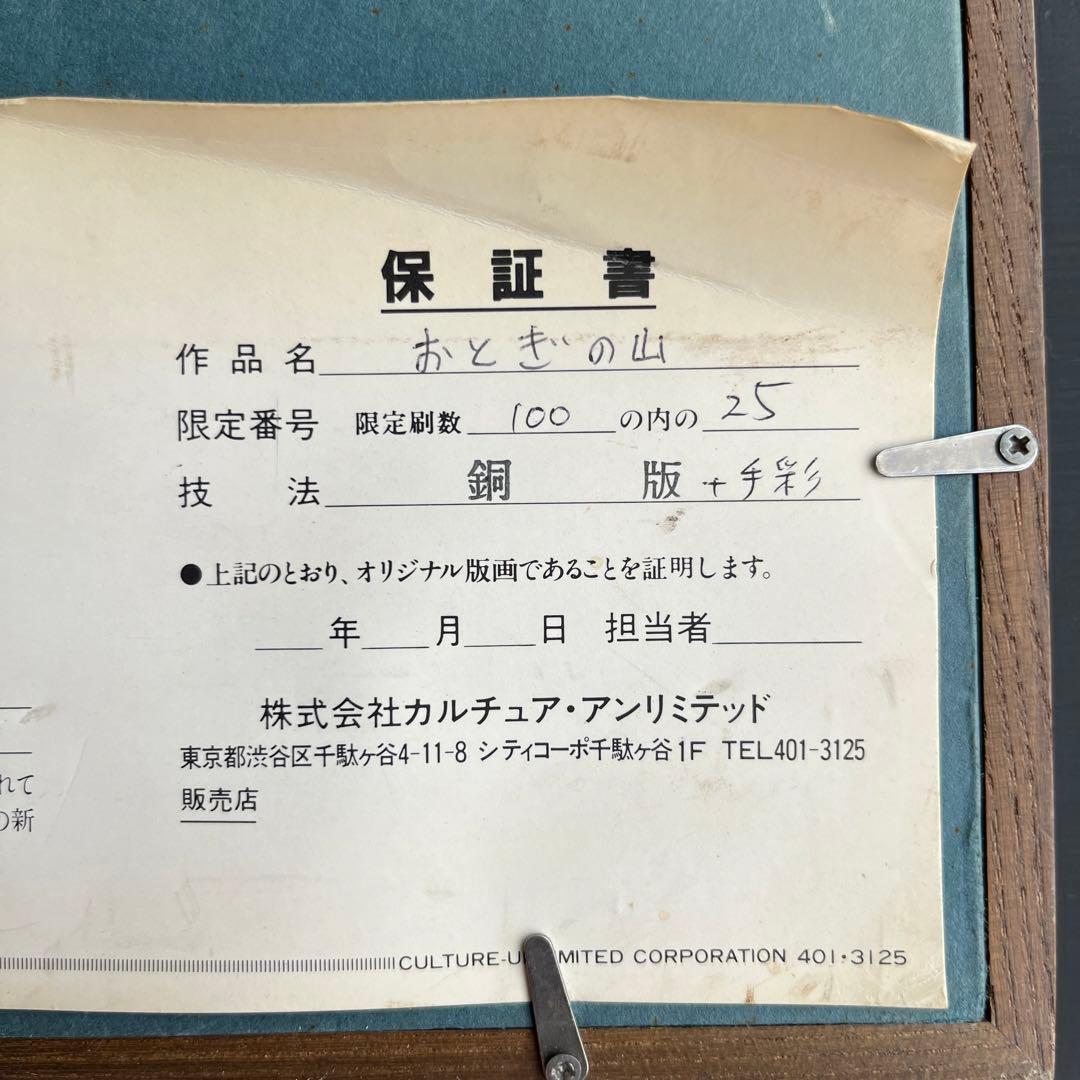 保証書
作品名 おとぎの山
限定番号 限定刷数 100 の内の 25
技法 銅版+手彩
●上記のとおり、オリジナル版画であることを証明します。
年 月 日 担当者
株式会社カルチュア・アンリミテッド
東京都渋谷区千駄ヶ谷4-11-8 シティコーポ千駄ヶ谷1F TEL401-3125
販売店
れて
の新
CULTURE-U MITED CORPORATION 401・3125